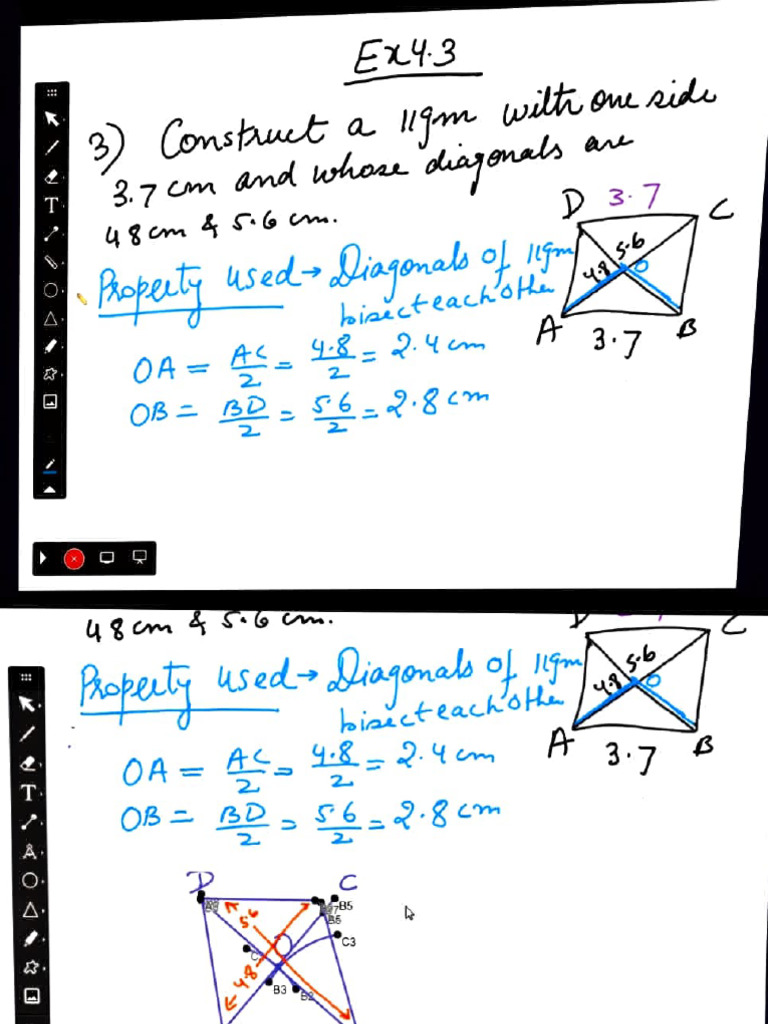 Ex 4.3
3) Construct a 11gm with one side
3.7 cm and whose diagonals are
48cm & 5.6 cm.
D 3.7 C
5.6
4.8 O
A 3.7 B
Property used → Diagonals of 11gm
bisect each other
OA = AC/2 = 4.8/2 = 2.4 cm
OB = BD/2 = 5.6/2 = 2.8 cm
T
48cm & 5.6 cm.
D C
5.6
4.8 O
A 3.7 B
Property used → Diagonals of 11gm
bisect each other
OA = AC/2 = 4.8/2 = 2.4 cm
OB = BD/2 = 5.6/2 = 2.8 cm
T
D C
B5
5.6
O C3
4.8
B3 B2